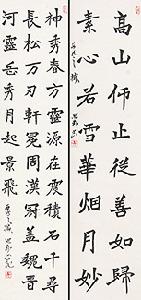 高山仰止從善如歸
素心若雪華烟月妙
神秀春方靈源在震積石千尋
長松万刃軒冕周漢冠蓋魏晉
河靈岳秀月起景飛